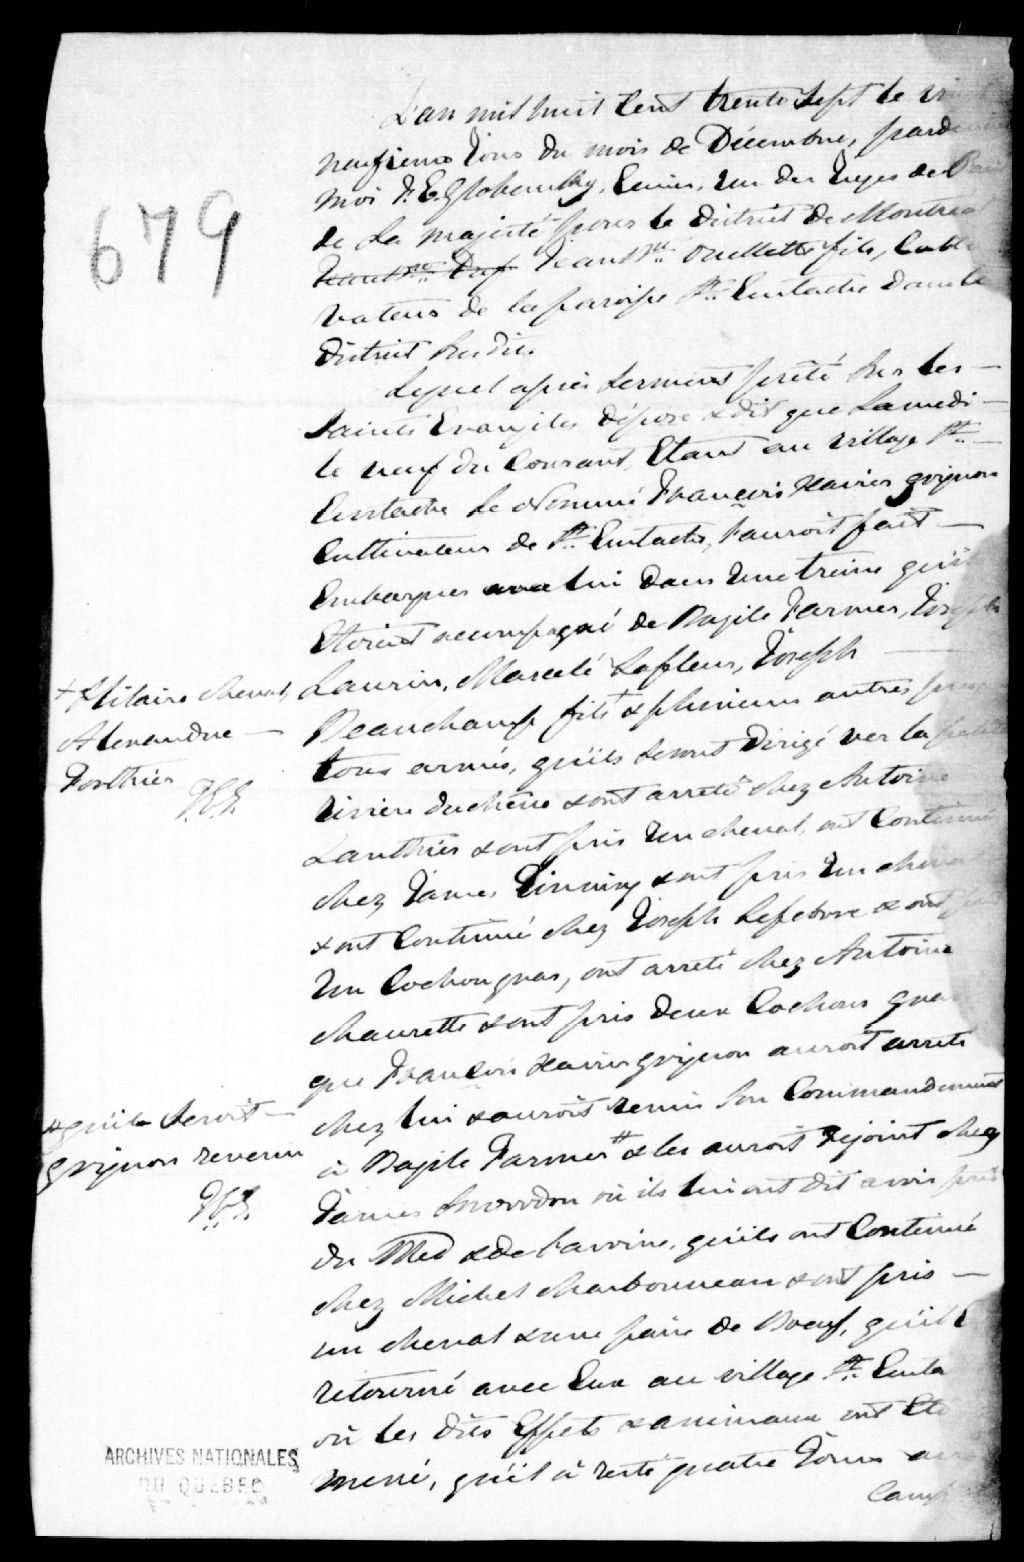 679
L'an mil huit Cent trente Sept le
neufieme Jour du mois de Décembre,
moi F. E. Globensky, Ecuier, un des Juges de
de Sa Majesté pour le District de Montreal
Jean Bte. Ouellette fils, Culti
vateur de la paroisse St. Eustache dans le
District Susdit.
Lequel après Serment prêté Sur les —
Saints Evangiles dépose & dit que Samedi —
le neuf du Courant, Etant au village St. —
Eustache le Nommé François Xavier Grignon
Cultivateur de St. Eustache, l'auroit fait —
Embarquer avec lui dans une traine qu'ils
Etoient accompagné de Bazile Farmer, Joseph
Laurin, Marcelé Lafleur, Joseph —
+ Hilaire Cheval,
Alexandre —
Forthier
Beauchamp fils + & plusieurs autres
tous armés, qu'ils se sont dirigé ver la petite
rivière duchêne & ont arreté chez Antoine
Lauthier & ont pris un cheval, ont Continué
chez James & ont pris un cheval
& ont Continué chez Joseph Lefebvre & ont
un Cochon gras, ont arreté chez Antoine
chaurette & ont pris deux Cochons gras
que François Xavier Grignon auroit arreté
chez lui & auroit remis Son Commandement
# qu'ils Seroit —
Grignon revenu
à Bazile Farmer # & les auroit rejoint chez
James Snowdon où ils lui ont dit avoir pris
du Bled & de l'avoine, qu'ils ont Continué
chez Michel Charbonneau & ont pris —
un cheval & une paire de Boeuf, qu'il
retourné avec Eux au village St. Eusta
où les dits Effets & animaux ont Eté
mené, qu'il à resté quatre Jours au
Camp
ARCHIVES NATIONALES
DU QUEBEC